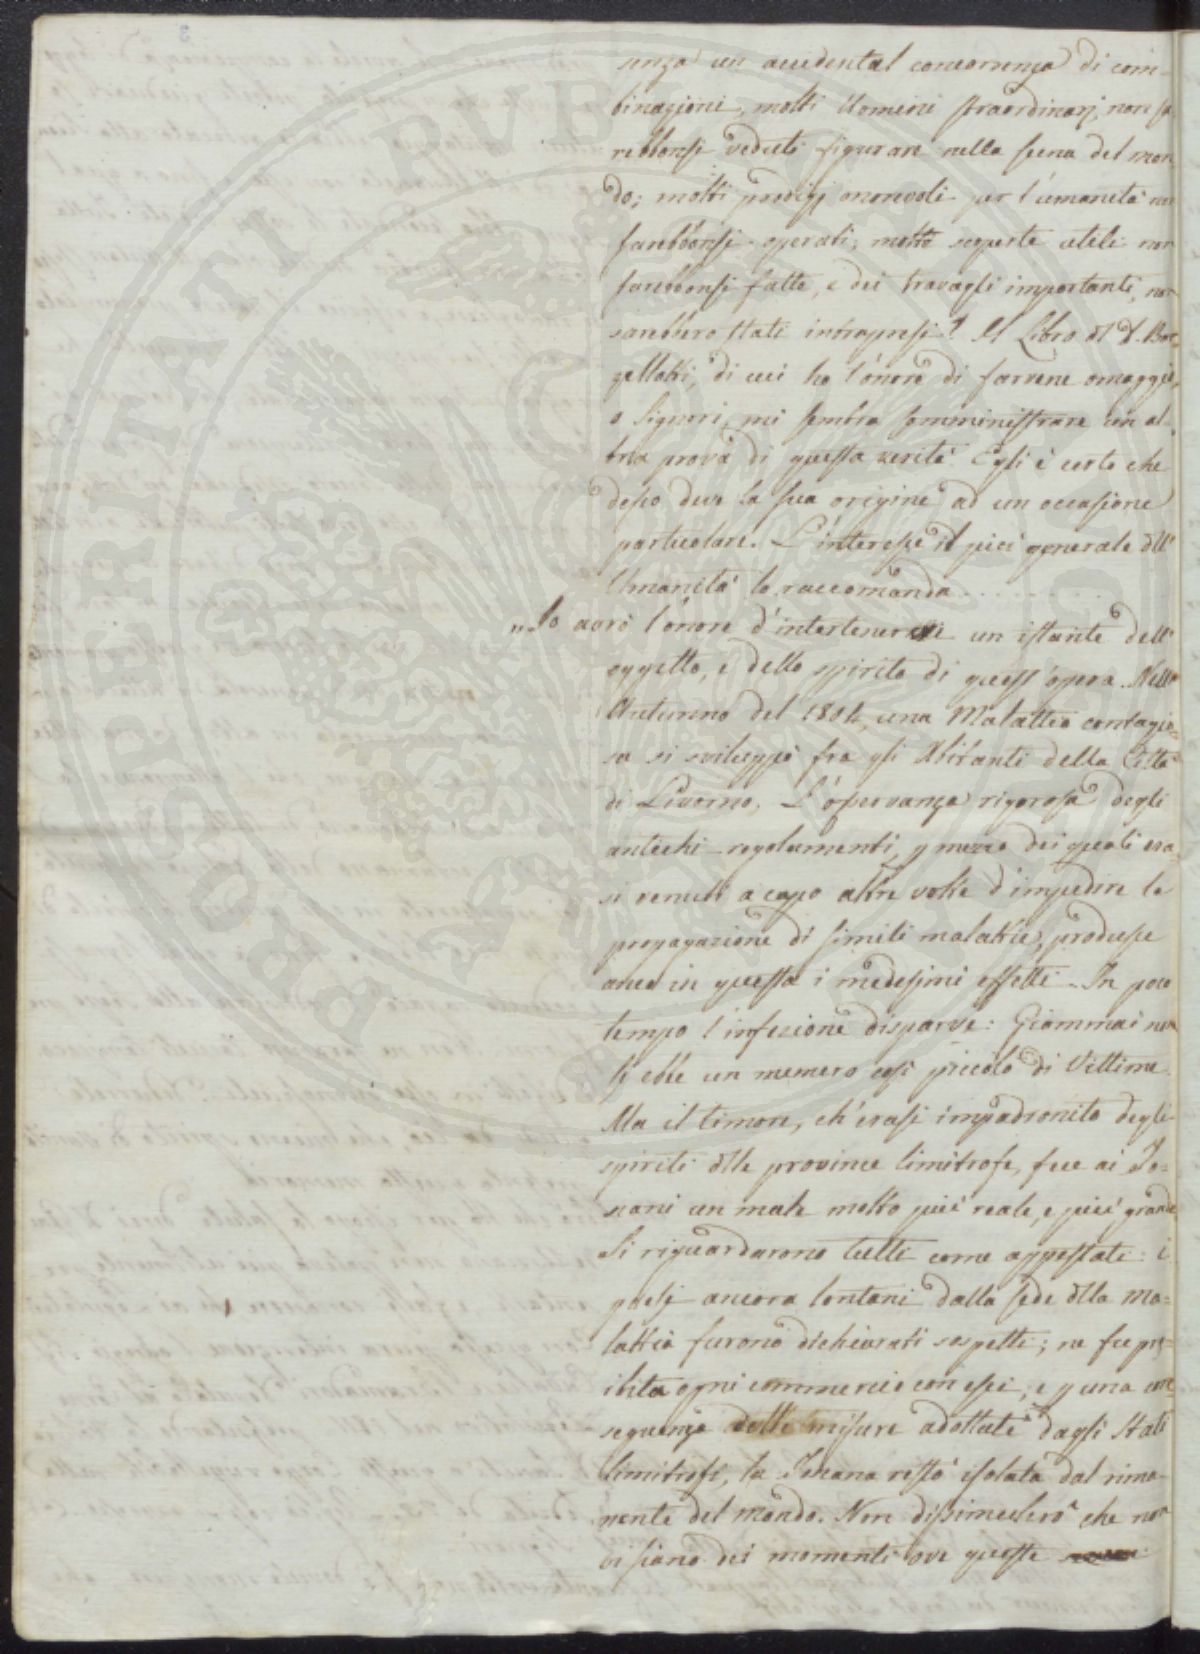 senza un accidental concorrenza di com-
binazioni, molti Uomini straordinarj, non sa
rebbonsi veduti figurare nella scena del mon
do; molti prodigj onorevoli per l'umanità non
sarebbonsi operati; molte scoperte utili non
sarebbonsi fatte, e dei travagli importanti, non
sarebbero stati intrapresi. Il Libro del D.
di cui ho l'onore di farvene omaggio,
o Signori, mi sembra somministrare un al-
tra prova di questa verità. Egli è certo che
desso deve la sua origine ad un occasione
particolare. L'interesse il più generale dell'
Umanità lo raccomanda . . . . . . . . .
„ Io avrò l'onore d'intertenervi un istante dell'
oggetto, e dello spirito di quest'opera. Nell'
Autunno del 1804, una Malattia contagio=
sa si sviluppò fra gli Abitanti della Città
di Livorno. L'osservanza rigorosa degli
antichi regolamenti, p mezzo dei quali era=
si venuti a capo altre volte d'impedire la
propagazione di simili malattie, produsse
anco in questa i medesimi effetti. In poco
tempo l'infezione disparve: Giammai non
si ebbe un numero così piccolo di Vittime.
Ma il timore, ch'erasi impadronito degli
spiriti dlle province limitrofe, fece ai To=
scani un male molto più reale, e più grande
Si riguardarono tutti come appestati: i
paesi ancora lontani dalla sede dlla ma=
lattia furono dichiarati sospetti; ne fu pro=
ibita ogni commercio con essi; e p una con=
seguenza delle misure adottate dagli Stati
limitrofi, la Toscana restò isolata dal rima=
nente del mondo. Non dissimulerò che non
vi siano dei momenti ove queste
PROSPERITATI PVBLICAE